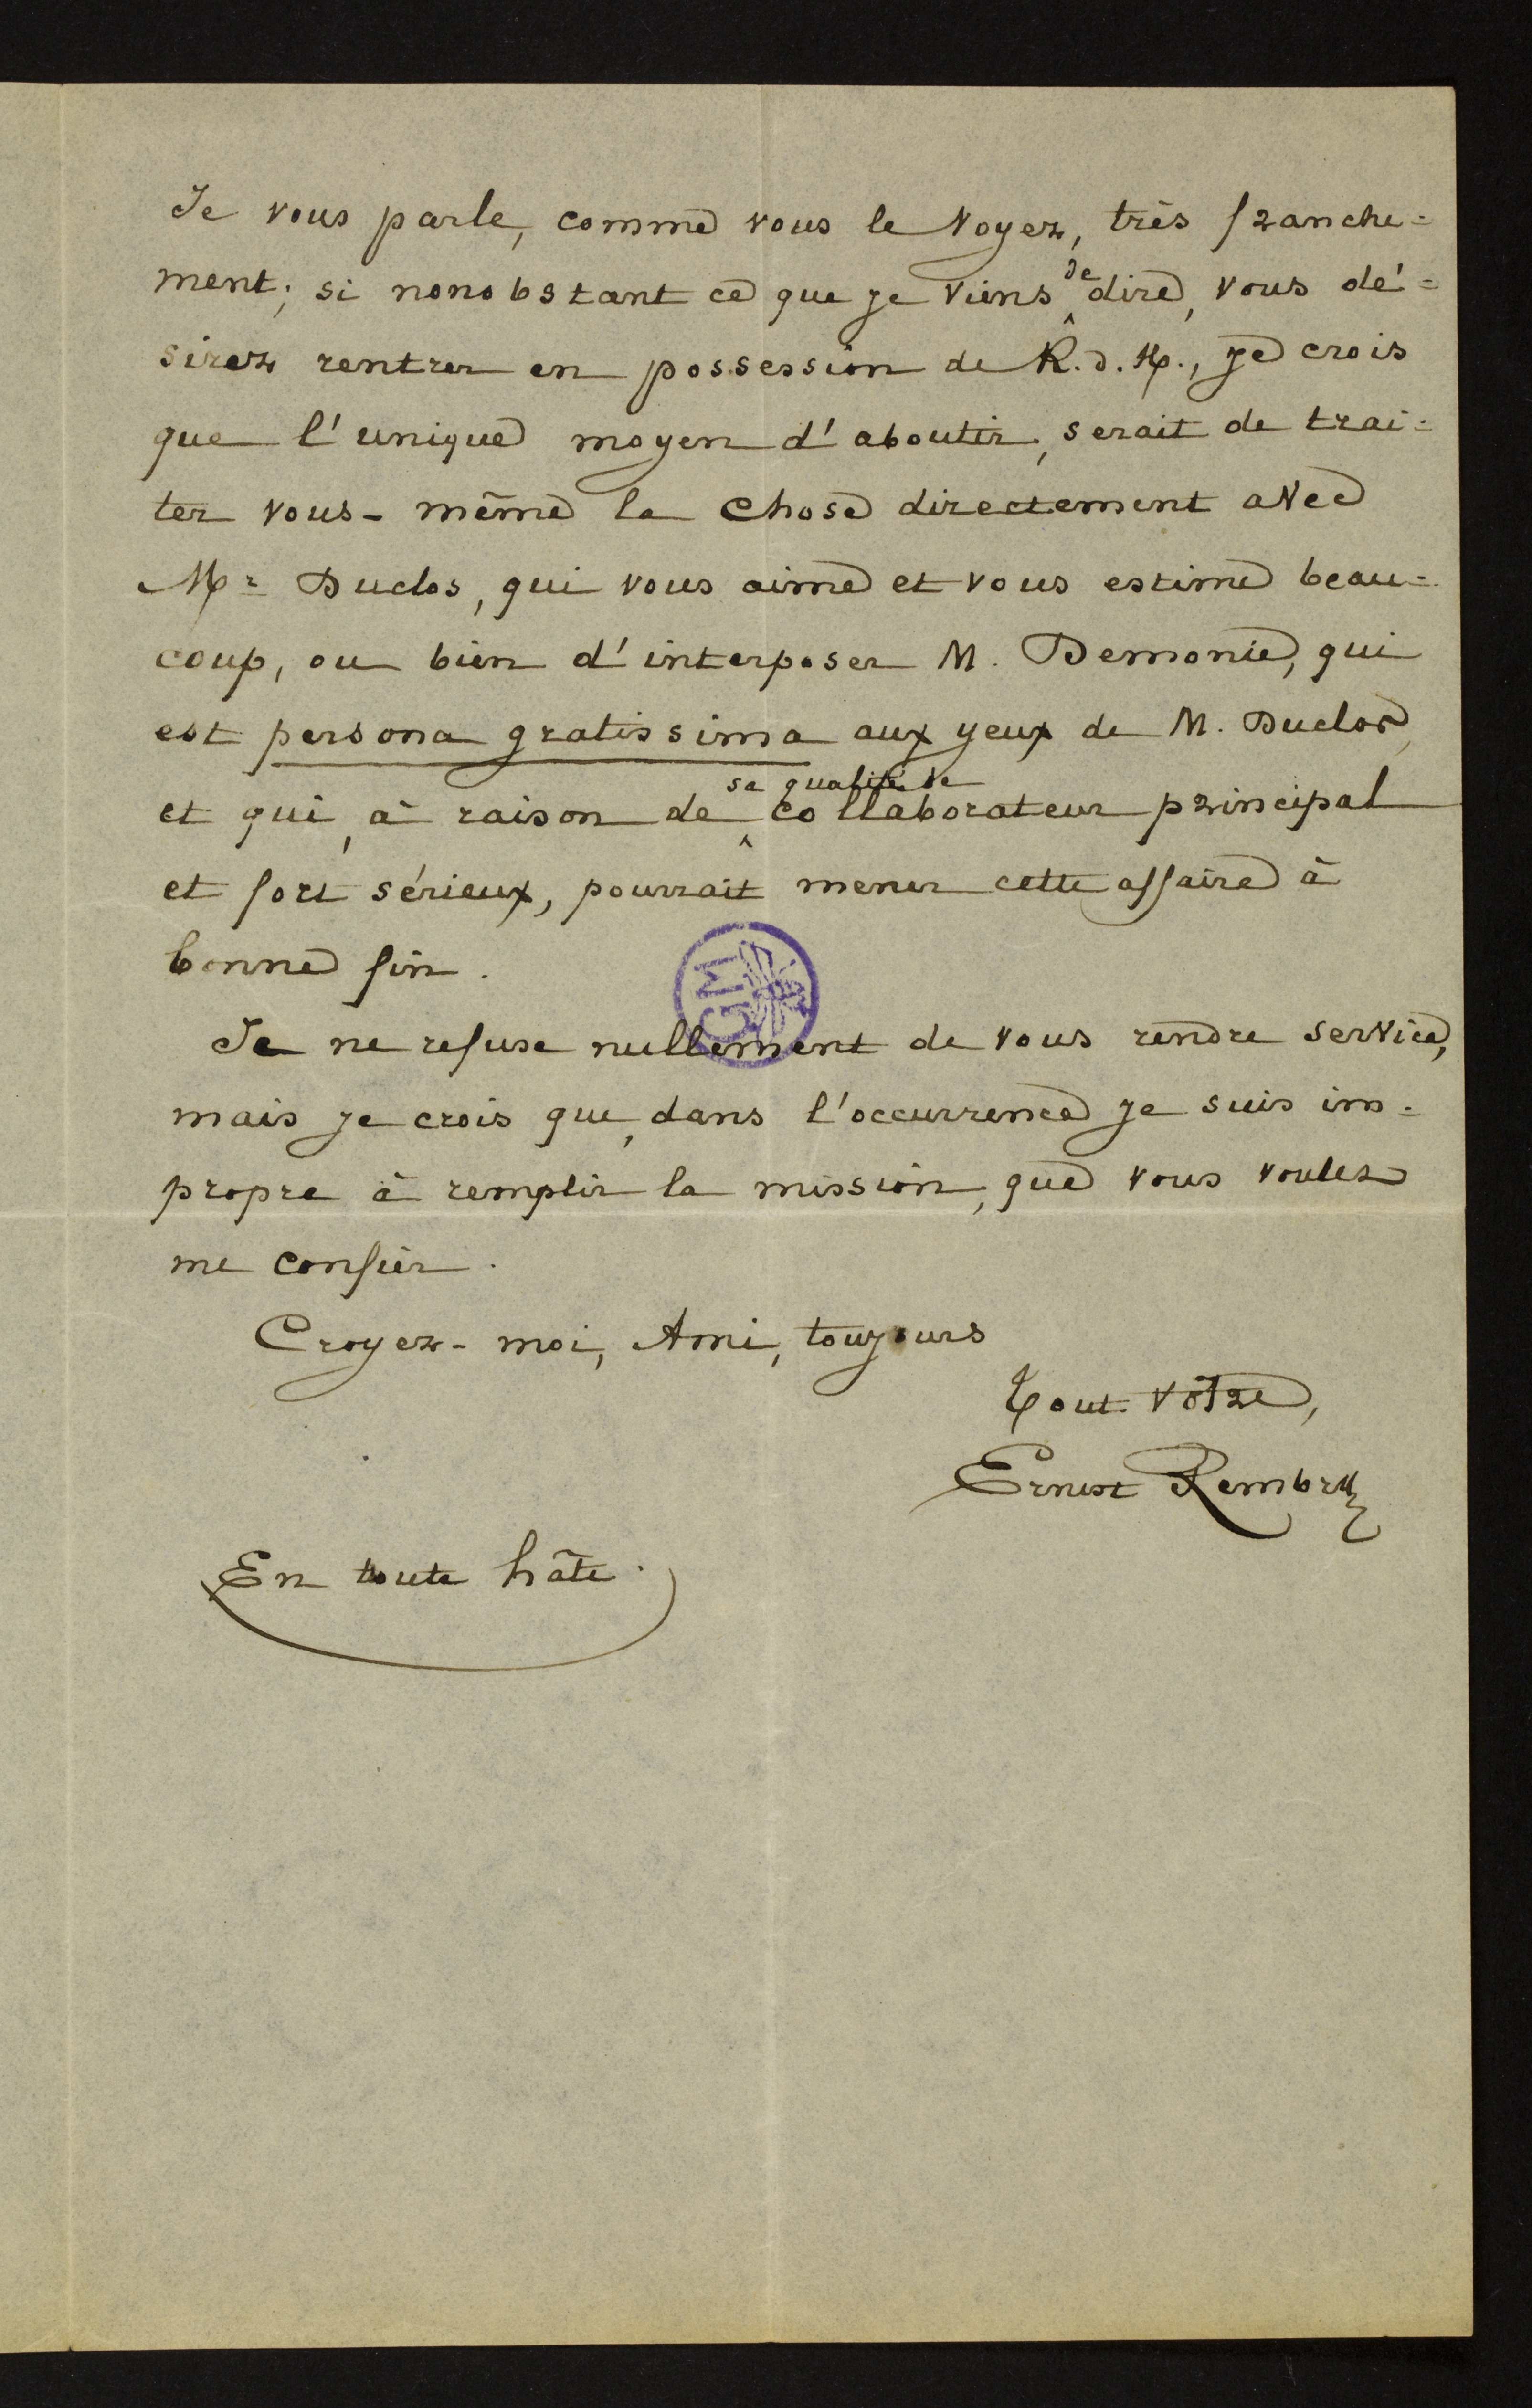 Je vous parle, comme vous le voyez, très franche=
ment; si nonobstant ce que je viens de dire, vous dé=
sirez rentrer en possession de R. d. H., je crois
que l'unique moyen d'aboutir, serait de trai=
ter vous-même la chose directement avec
Mr Duclos, qui vous aime et vous estime beau=
coup, ou bien d'interposer M. Demonie, qui
est persona gratissima aux yeux de M. Duclos,
et qui, à raison de sa qualité de collaborateur principal
et fort sérieux, pourrait mener cette affaire à
bonne fin.
GM
Je ne refuse nullement de vous rendre service,
mais je crois que, dans l'occurrence je suis im-
propre à remplir la mission, que vous voulez
me confier.
Croyez-moi, Ami, toujours
Tout vôtre,
Ernest Rembry
En toute hâte.